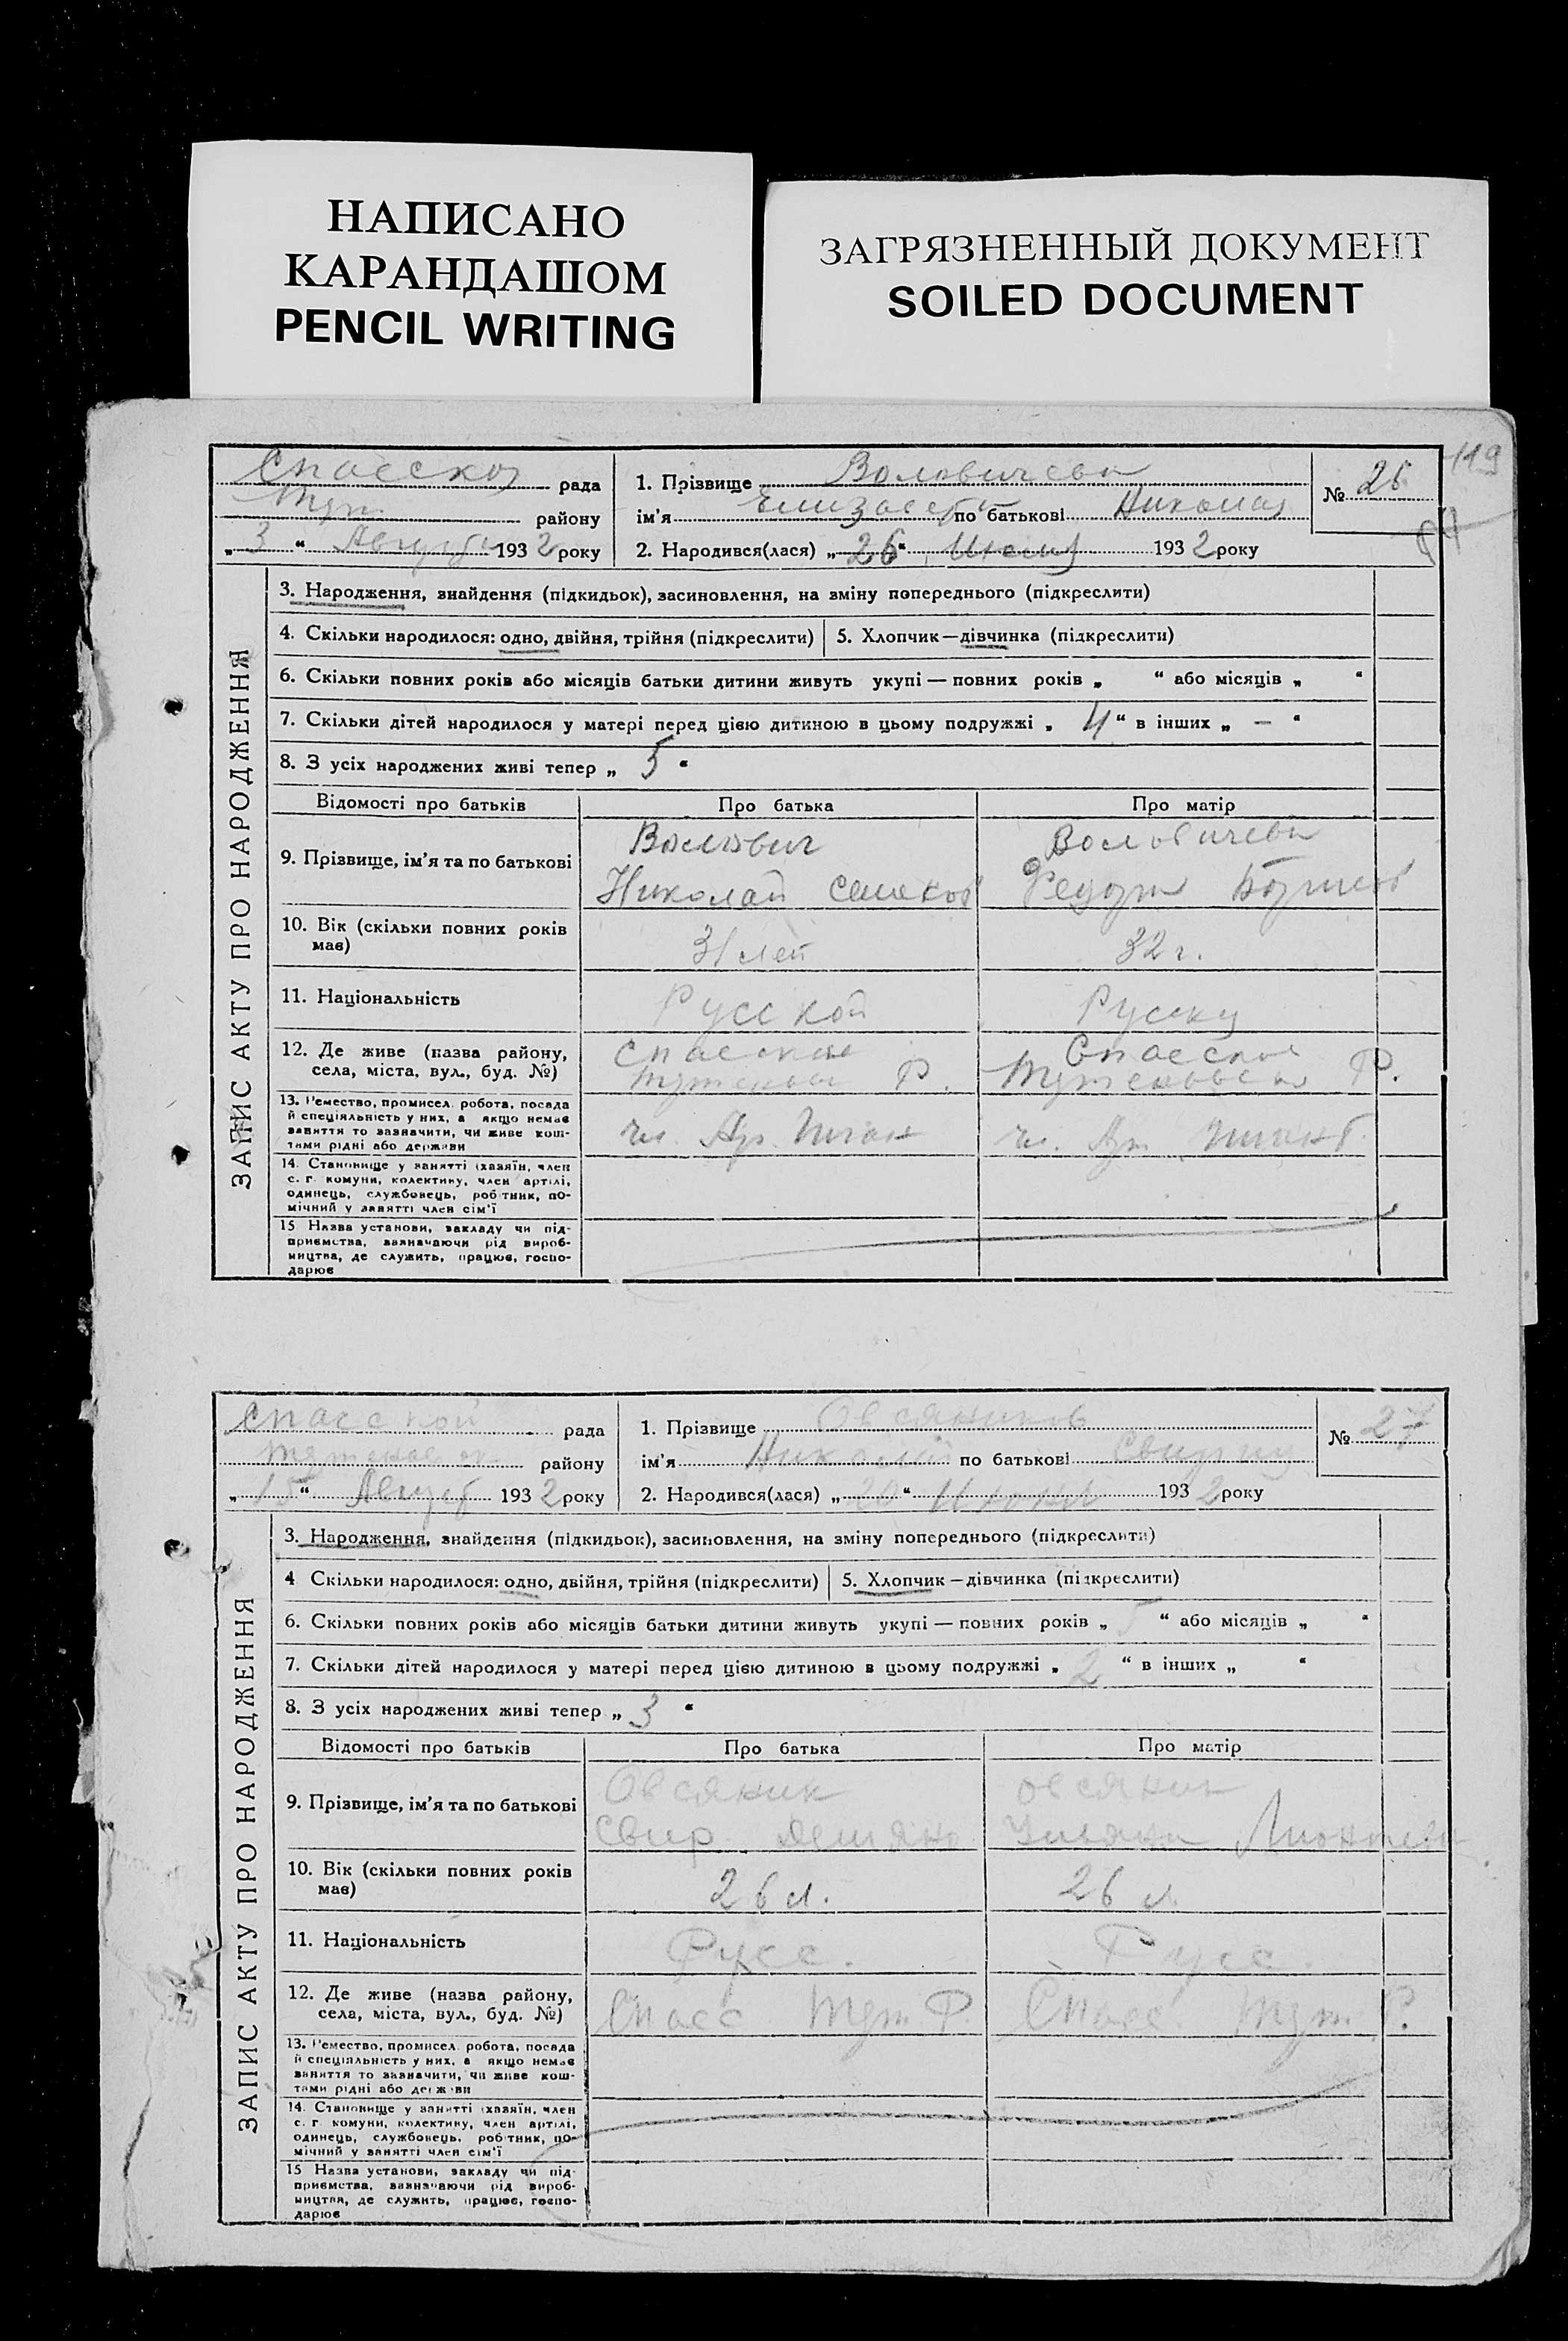 НАПИСАНО
КАРАНДАШОМ
PENCIL WRITING
ЗАГРЯЗНЕННЫЙ ДОКУМЕНТ
SOILED DOCUMENT
119
Спасской рада
Тут. району
„ 3 “ Август 1932 року
1. Прізвище Воловичева
ім'я Елизавета по батькові Николая
2. Народився(лася) „ 26 “ Июля 1932 року
№ 26
ЗАПИС АКТУ ПРО НАРОДЖЕННЯ
3. Народження, знайдення (підкидьок), засиновлення, на зміну попереднього (підкреслити)
4. Скільки народилося: одно, двійня, трійня (підкреслити) 5. Хлопчик—дівчинка (підкреслити)
6. Скільки повних років або місяців батьки дитини живуть укупі — повних років „ “ або місяців „ “
7. Скільки дітей народилося у матері перед цією дитиною в цьому подружжі „ 4 “ в інших „ — “
8. З усіх народжених живі тепер „ 5 “
Відомості про батьків Про батька Про матір
9. Прізвище, ім'я та по батькові
Волович
Николай Семенов
Воловичева
Федора
10. Вік (скільки повних років має) 31 лет 32 г.
11. Національність Русской Русску
12. Де живе (назва району, села, міста, вул., буд. №)
Спасское
Р.
Спасское
Р.
13. Ремество, промисел, робота, посада
й спеціяльність у них, а якщо немає
заняття то зазначити, чи живе кош-
тами рідні або держави
14. Становище у занятті (хазяїн, член
с. г. комуни, колективу, член артілі,
одинець, службовець, робітник, по-
мічний у занятті член сім'ї
15 Назва установи, закладу чи під-
приємства, зазначаючи рід вироб-
ництва, де служить, працює, госпо-
дарює
Спасской рада
району
„ 15 “ Август 1932 року
1. Прізвище Овсяников
ім'я Николай по батькові
2. Народився(лася) „ 20 “ Июня 1932 року
№ 27
ЗАПИС АКТУ ПРО НАРОДЖЕННЯ
3. Народження, знайдення (підкидьок), засиновлення, на зміну попереднього (підкреслити)
4 Скільки народилося: одно, двійня, трійня (підкреслити) 5. Хлопчик—дівчинка (підкреслити)
6. Скільки повних років або місяців батьки дитини живуть укупі — повних років „ 5 “ або місяців „ “
7. Скільки дітей народилося у матері перед цією дитиною в цьому подружжі „ 2 “ в інших „ “
8. З усіх народжених живі тепер „ 3 “
Відомості про батьків Про батька Про матір
9. Прізвище, ім'я та по батькові
Овсяник
Свир.
Овсяник
Ульяна
10. Вік (скільки повних років має) 26 л. 26 л.
11. Національність Русс. Русс.
12. Де живе (назва району, села, міста, вул., буд. №)
Спасс Тут. Р.
Спасс. Тут. Р.
13. Ремество, промисел, робота, посада
й спеціяльність у них, а якщо немає
заняття то зазначити, чи живе кош-
тами рідні або держави
14. Становище у занятті (хазяїн, член
с. г. комуни, колективу, член артілі,
одинець, службовець, робітник, по-
мічний у занятті член сім'ї
15 Назва установи, закладу чи під-
приємства, зазначаючи рід вироб-
ництва, де служить, працює, госпо-
дарює